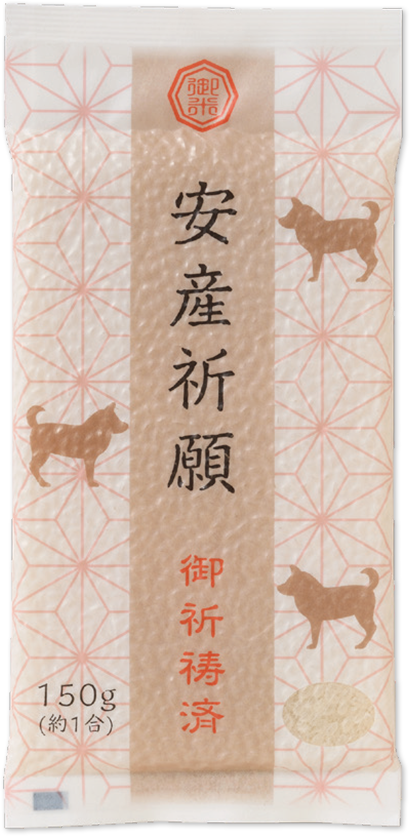 御米
安産祈願
御祈祷済
150g
(約1合)